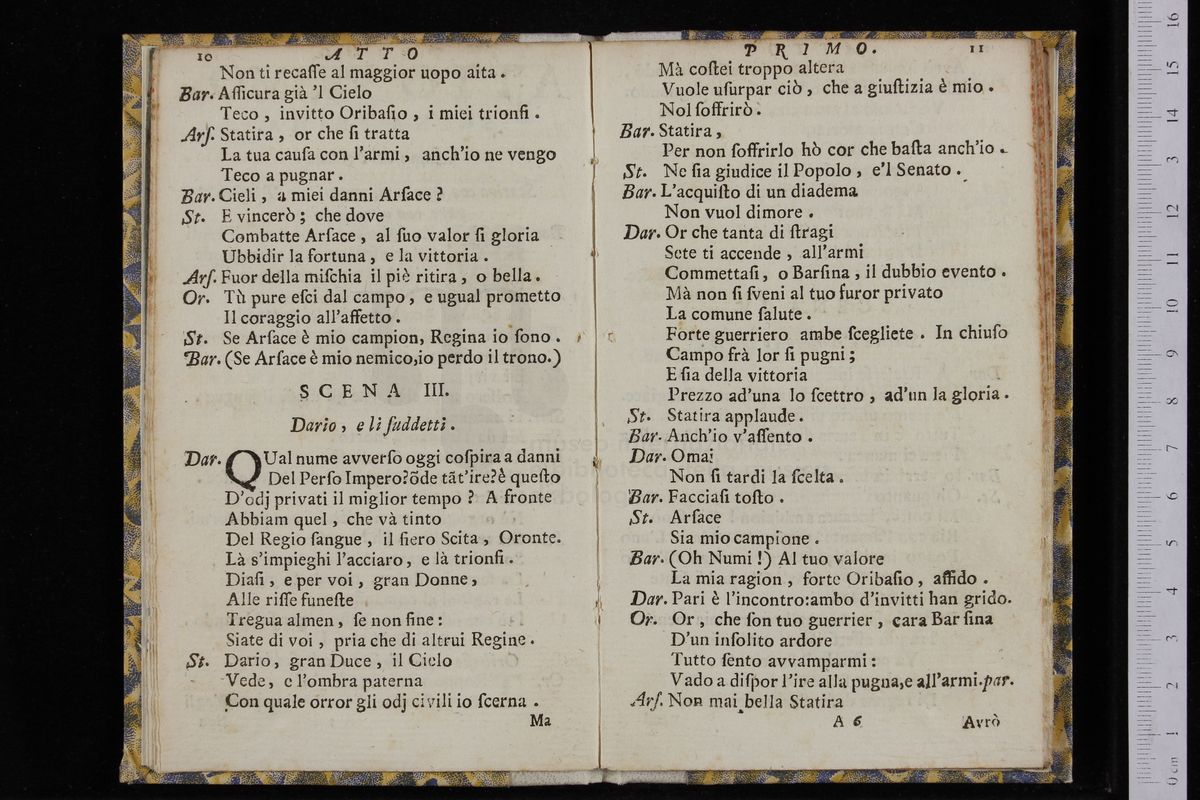 10 ATTO
Non ti recaſſe al maggior uopo aita .
Bar. Aſſicura già 'l Cielo
Teco , invitto Oribaſio , i miei trionfi .
Arſ. Statira , or che ſi tratta
La tua cauſa con l'armi , anch'io ne vengo
Teco a pugnar .
Bar. Cieli , a miei danni Arſace ?
St. E vincerò ; che dove
Combatte Arſace , al ſuo valor ſi gloria
Ubbidir la fortuna , e la vittoria .
Arſ. Fuor della miſchia il piè ritira , o bella .
Or. Tù pure eſci dal campo , e ugual prometto
Il coraggio all'affetto .
St. Se Arſace è mio campion, Regina io ſono .
Bar. (Se Arſace è mio nemico,io perdo il trono.)
SCENA III.
Dario , e li ſuddetti .
Dar. QUal nume avverſo oggi coſpira a danni
Del Perſo Impero?õde tãt'ire?è queſto
D'odj privati il miglior tempo ? A fronte
Abbiam quel , che và tinto
Del Regio ſangue , il fiero Scita , Oronte.
Là s'impieghi l'acciaro , e là trionfi .
Diaſi , e per voi , gran Donne ,
Alle riſſe funeſte
Tregua almen , ſe non fine :
Siate di voi , pria che di altrui Regine .
St. Dario , gran Duce , il Cielo
Vede , e l'ombra paterna
Con quale orror gli odj civili io ſcerna .
Ma
PRIMO. 11
Mà coſtei troppo altera
Vuole uſurpar ciò , che a giuſtizia è mio .
Nol ſoffrirò .
Bar. Statira ,
Per non ſoffrirlo hò cor che baſta anch'io .
St. Ne ſia giudice il Popolo , e'l Senato .
Bar. L'acquiſto di un diadema
Non vuol dimore .
Dar. Or che tanta di ſtragi
Sete ti accende , all'armi
Commettaſi , o Barſina , il dubbio evento .
Mà non ſi ſveni al tuo furor privato
La comune ſalute .
Forte guerriero ambe ſcegliete . In chiuſo
Campo frà lor ſi pugni ;
E ſia della vittoria
Prezzo ad'una lo ſcettro , ad'un la gloria .
St. Statira applaude .
Bar. Anch'io v'aſſento .
Dar. Omai
Non ſi tardi la ſcelta .
Bar. Facciaſi toſto .
St. Arſace
Sia mio campione .
Bar. (Oh Numi !) Al tuo valore
La mia ragion , forte Oribaſio , affido .
Dar. Pari è l'incontro:ambo d'invitti han grido.
Or. Or , che ſon tuo guerrier , cara Bar ſina
D'un inſolito ardore
Tutto ſento avvamparmi :
Vado a diſpor l'ire alla pugna,e all'armi.par.
Arſ. Non mai bella Statira
A 6 Avrò
0 cm 1 2 3 4 5 6 7 8 9 10 11 12 13 14 15 16